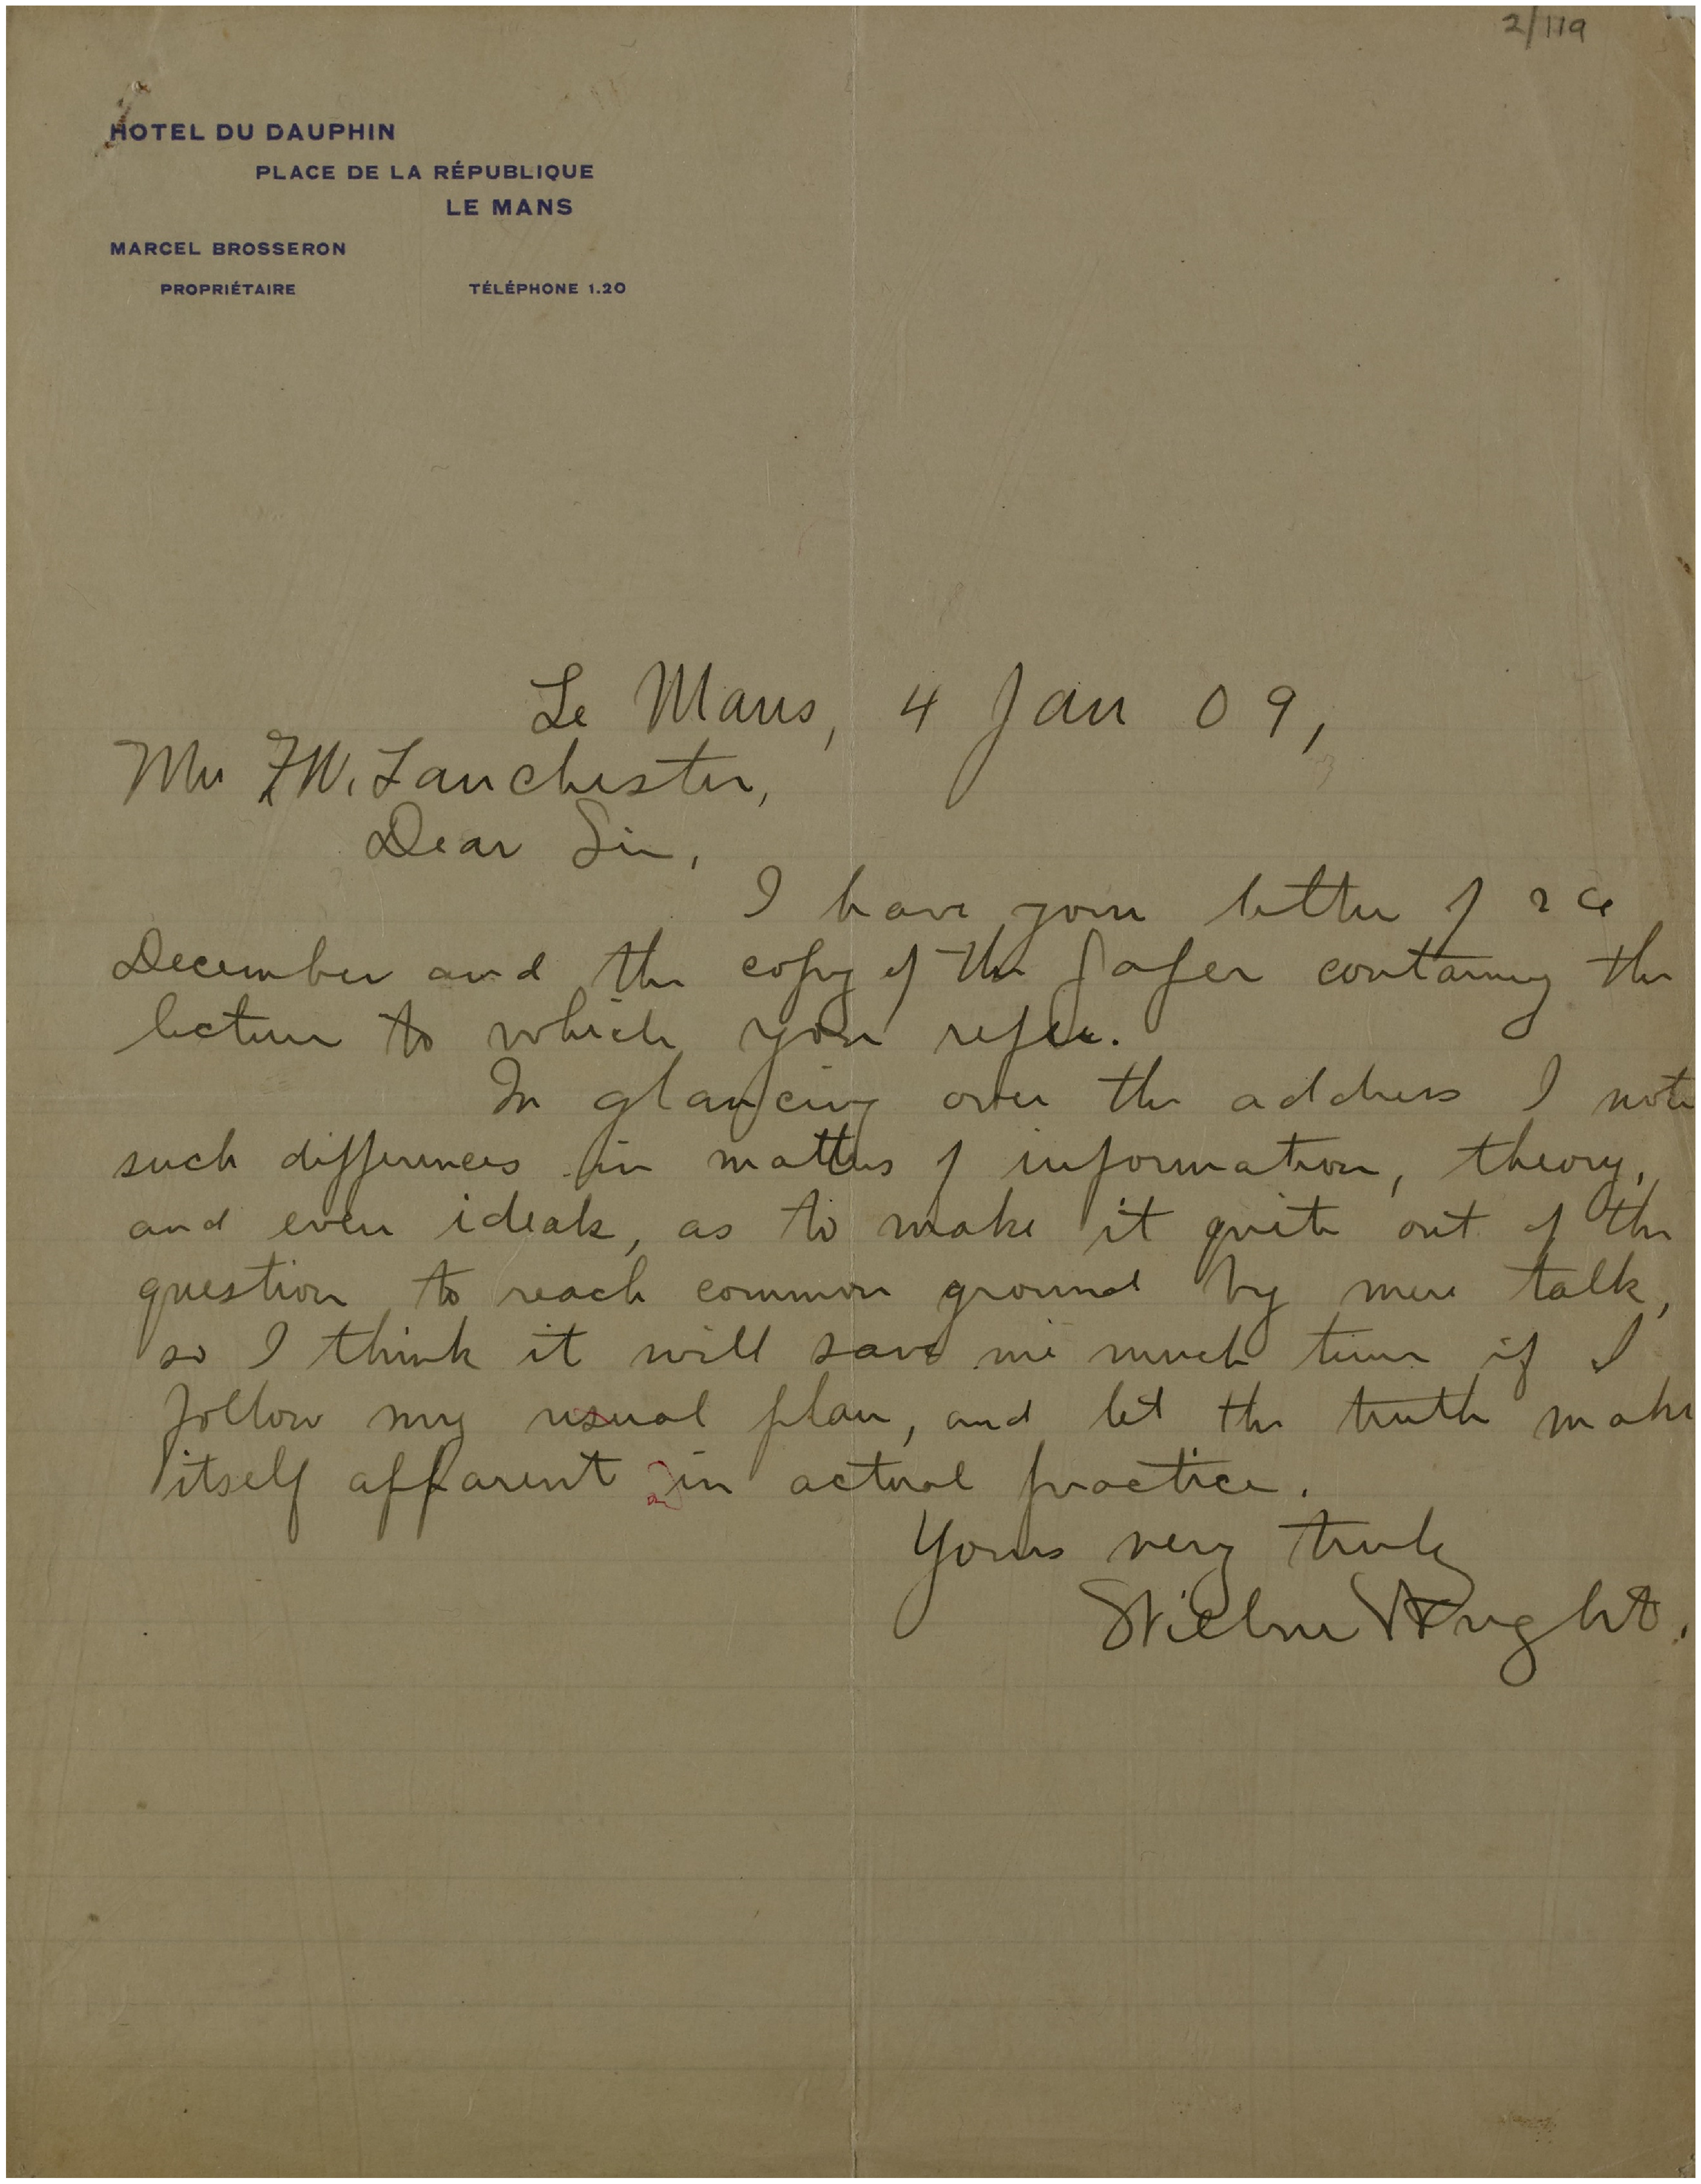 2/119
HOTEL DU DAUPHIN
PLACE DE LA RÉPUBLIQUE
LE MANS
MARCEL BROSSERON
PROPRIÉTAIRE
TÉLÉPHONE 1.20
Le Mans, 4 Jan 09,
Mr F.W. Lanchester,
Dear Sir,
I have your letter of
December and the copy of the paper containing the
lecture to which you refer.
In glancing over the address I note
such differences in matters of information, theory,
and even ideals, as to make it quite out of the
question to reach common ground by mere talk,
so I think it will save me much time if I
follow my usual plan, and let the truth make
itself apparent in actual practice.
Yours very truly
Wilbur Wright.